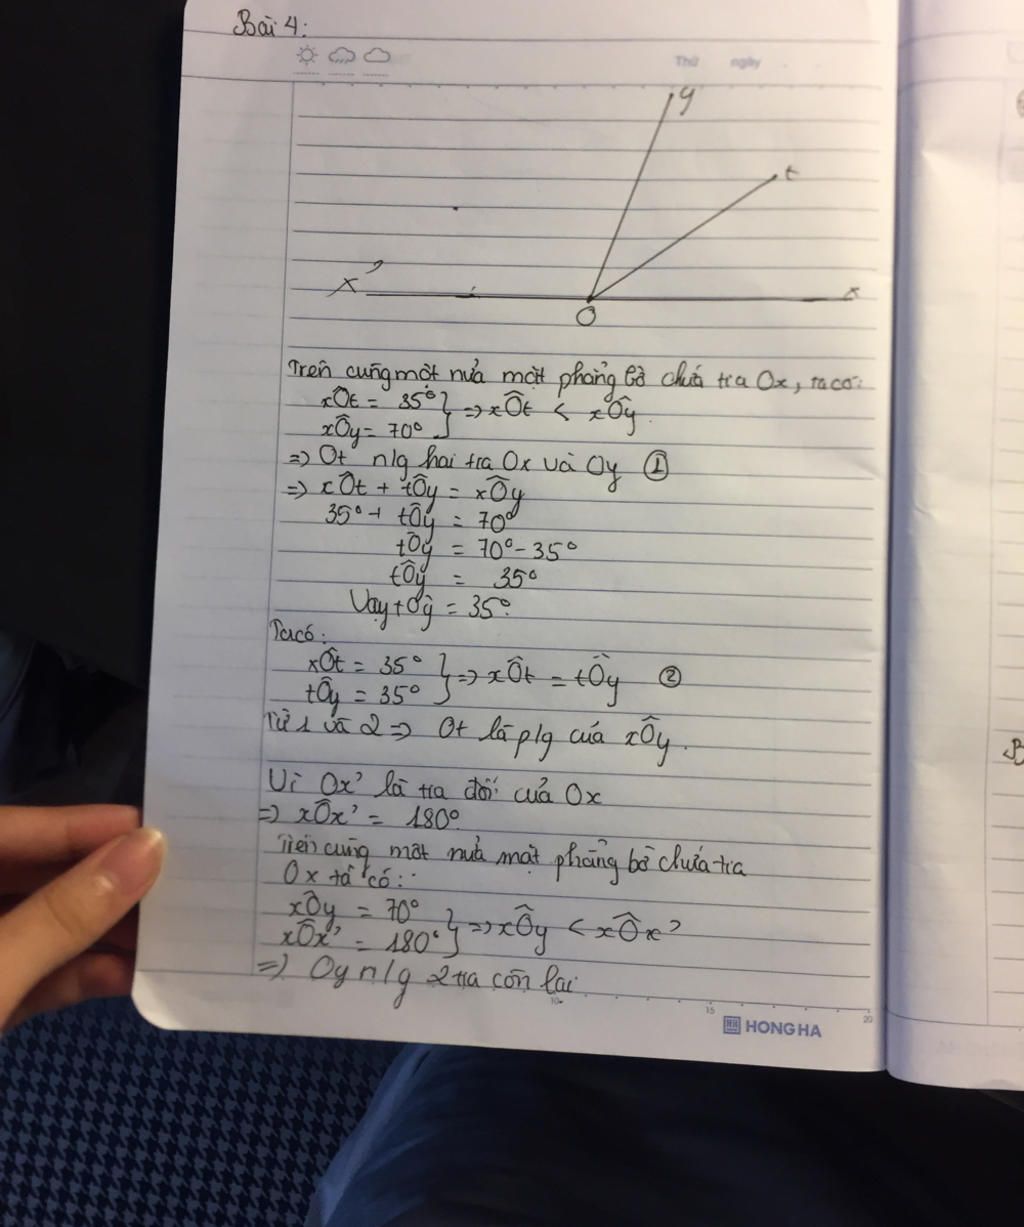 Bài 4:
Thứ ngày
y
t
x'
x
O
Trên cùng một nửa mặt phẳng bờ chứa tia Ox, ta có:
xÔt = 35° } => xÔt < xÔy
xÔy = 70°
=> Ot n/g hai tia Ox và Oy ①
=> xÔt + tÔy = xÔy
35° + tÔy = 70°
tÔy = 70° - 35°
tÔy = 35°
Vậy tÔy = 35°.
Ta có:
xÔt = 35° } => xÔt = tÔy ②
tÔy = 35°
Từ 1 và 2 => Ot là p/g của xÔy.
Vì Ox' là tia đối của Ox
=> xÔx' = 180°
Trên cùng một nửa mặt phẳng bờ chứa tia
Ox ta có:
xÔy = 70° } => xÔy < xÔx'
xÔx' = 180°
=> Oy n/g 2 tia còn lại
10 15 20
HH HONG HA